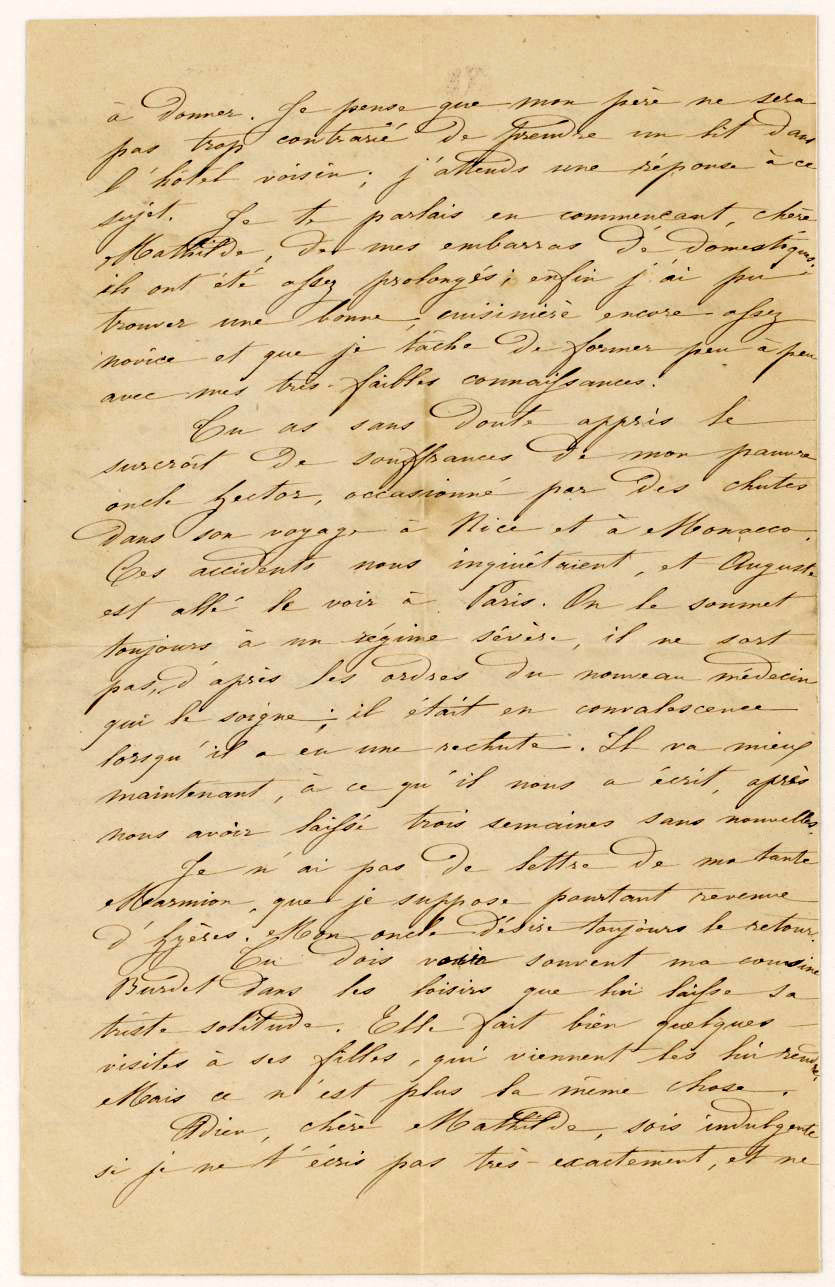 à donner. Je pense que mon père ne sera
pas trop contrarié de prendre un lit dans
l'hôtel voisin ; j'attends une réponse à ce
sujet. Je te parlais en commençant, chère
Mathilde, de mes embarras de domestiques ;
ils ont été assez prolongés ; enfin j'ai pu
trouver une bonne, cuisinière encore assez
novice et que je tâche de former peu à peu
avec mes très-faibles connaissances.
Tu as sans doute appris le
surcroît de souffrances de mon pauvre
oncle Hector, occasionné par des chutes
dans son voyage à Nice et à Monacco.
Ces accidents nous inquiétaient, et Auguste
est allé le voir à Paris. On le soumet
toujours à un régime sévère, il ne sort
pas, d'après les ordres du nouveau médecin
qui le soigne ; il était en convalescence
lorsqu'il a eu une rechute. Il va mieux
maintenant, à ce qu'il nous a écrit, après
nous avoir laissé trois semaines sans nouvelles.
Je n'ai pas de lettre de ma tante
Marmion, que je suppose pourtant revenue
d'Hyères. Mon oncle désire toujours le retour.
Tu dois voir souvent ma cousine
Burdet dans les loisirs que lui laisse sa
triste solitude. Elle fait bien quelques
visites à ses filles, qui viennent les lui rendre,
Mais ce n'est plus la même chose.
Adieu, chère Mathilde, sois indulgente
si je ne t'écris pas très-exactement, et ne